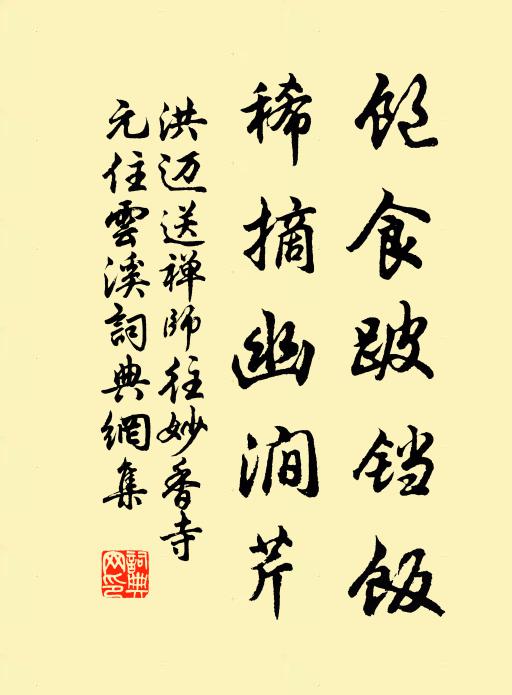 飽食跛铛飯
稀摘幽澗芹
洪迈送禅師往妙香寺
元住雲溪詞典網集
詞典网印